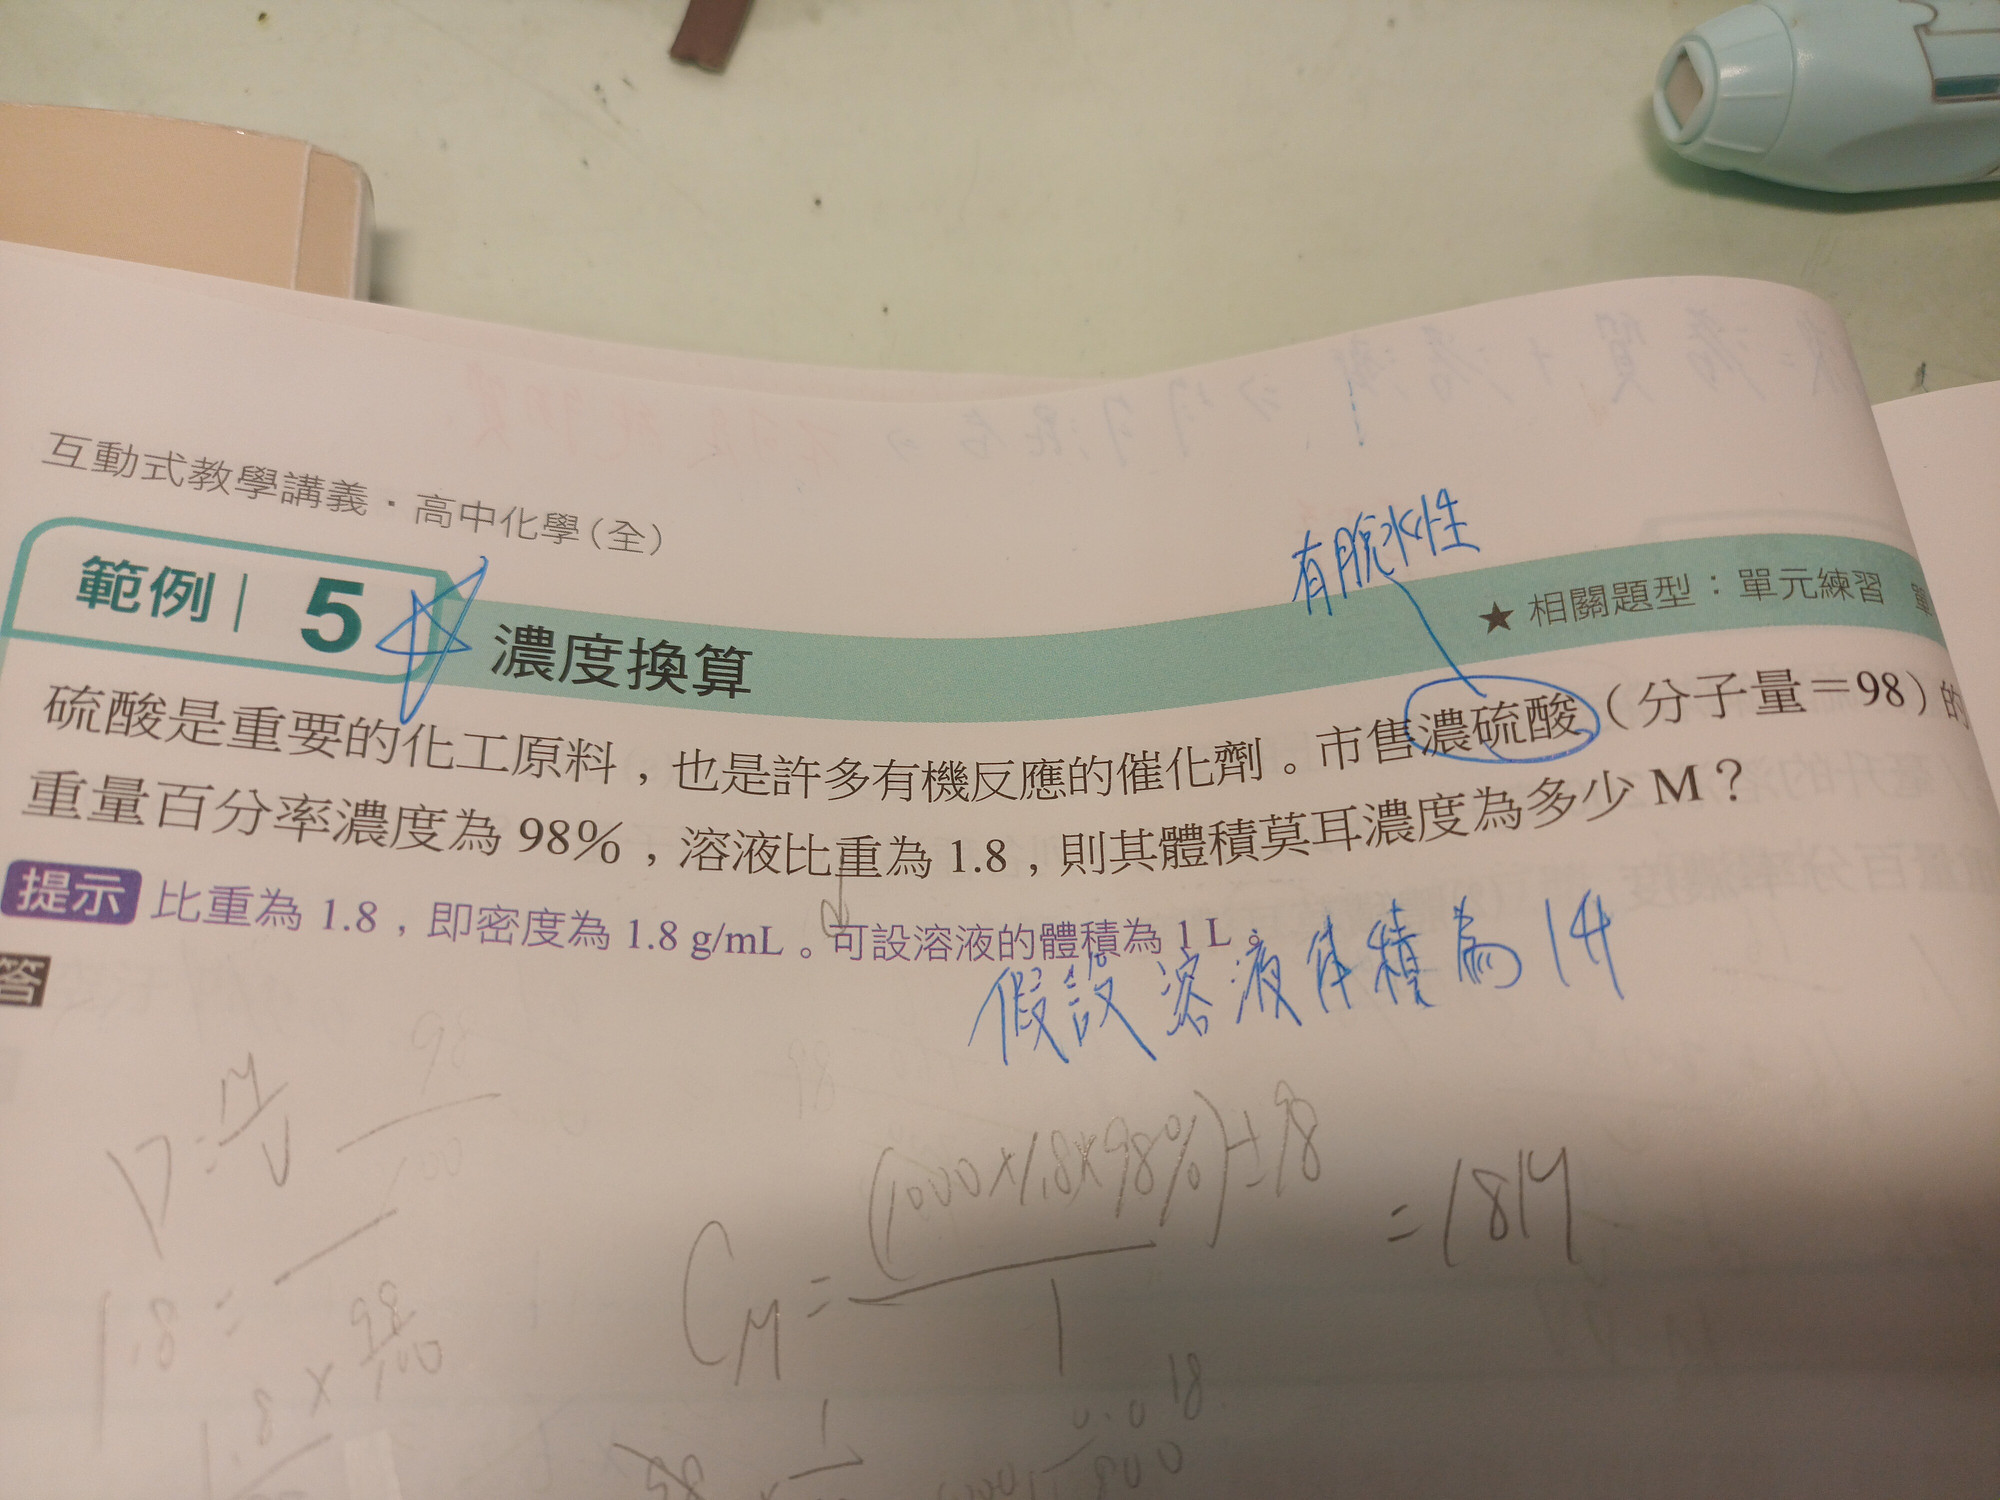 互動式教學講義・高中化學(全)
有脫水性
範例 5 濃度換算
★ 相關題型：單元練習
硫酸是重要的化工原料，也是許多有機反應的催化劑。市售濃硫酸（分子量＝98）的
重量百分率濃度為 98%，溶液比重為 1.8，則其體積莫耳濃度為多少 M？
提示 比重為 1.8，即密度為 1.8 g/mL。可設溶液的體積為 1 L。
假設溶液体積為 1升
答
D = M/V
98
1.8 =
(1000×1.8×98%)÷98
C_M = ──── = 18M
1
1.8 × 98/100